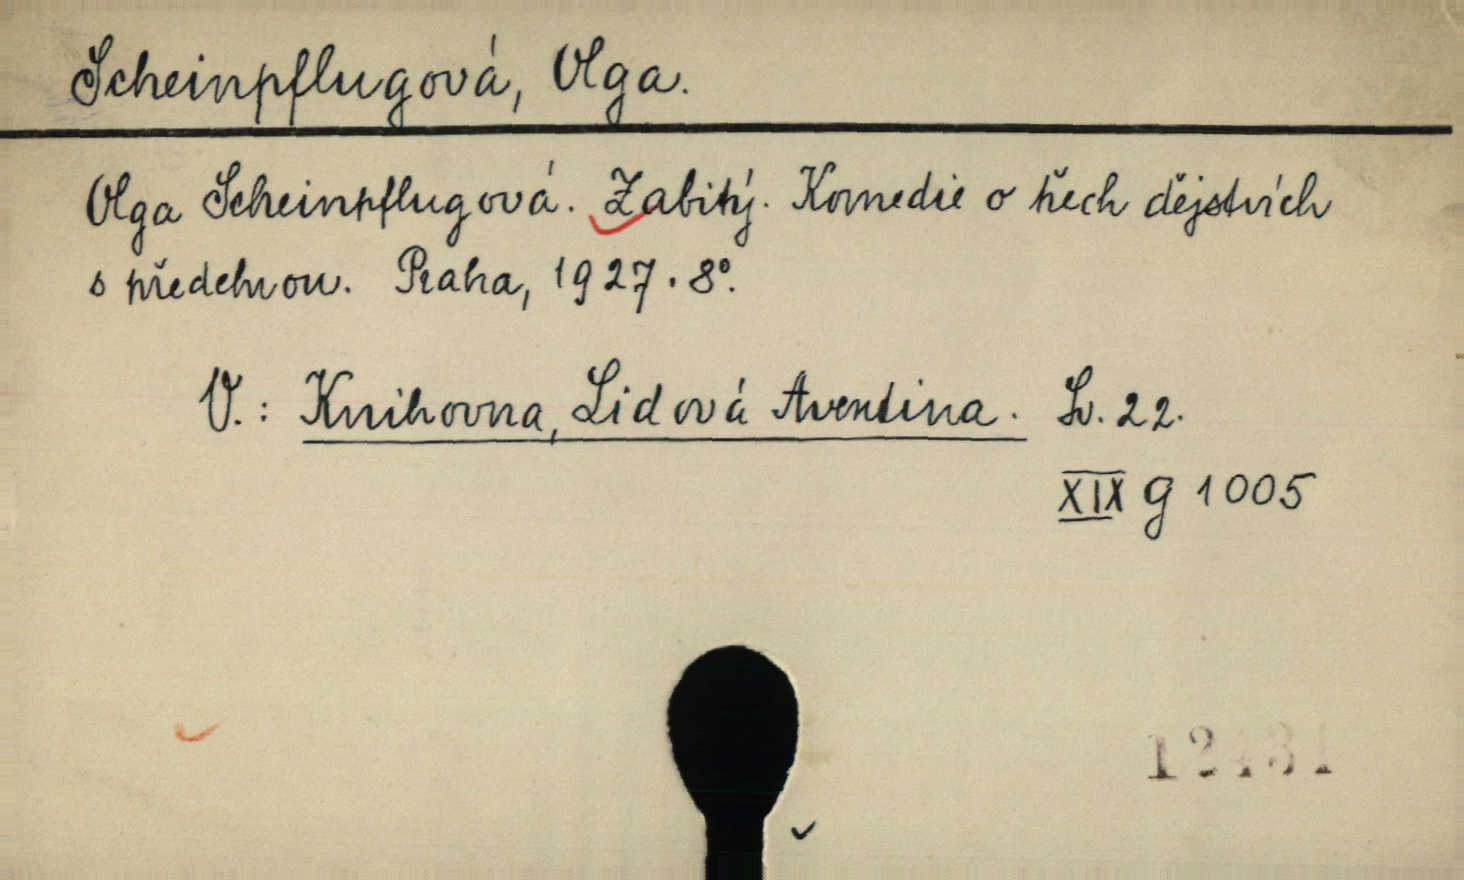 Scheinpflugová, Olga.
Olga Scheinpflugová. Zabitý. Komedie o třech dějstvích
s předehrou. Praha, 1927. 8°.
V.: Knihovna, Lidová Aventina. Sv. 22.
XIX g 1005
12431